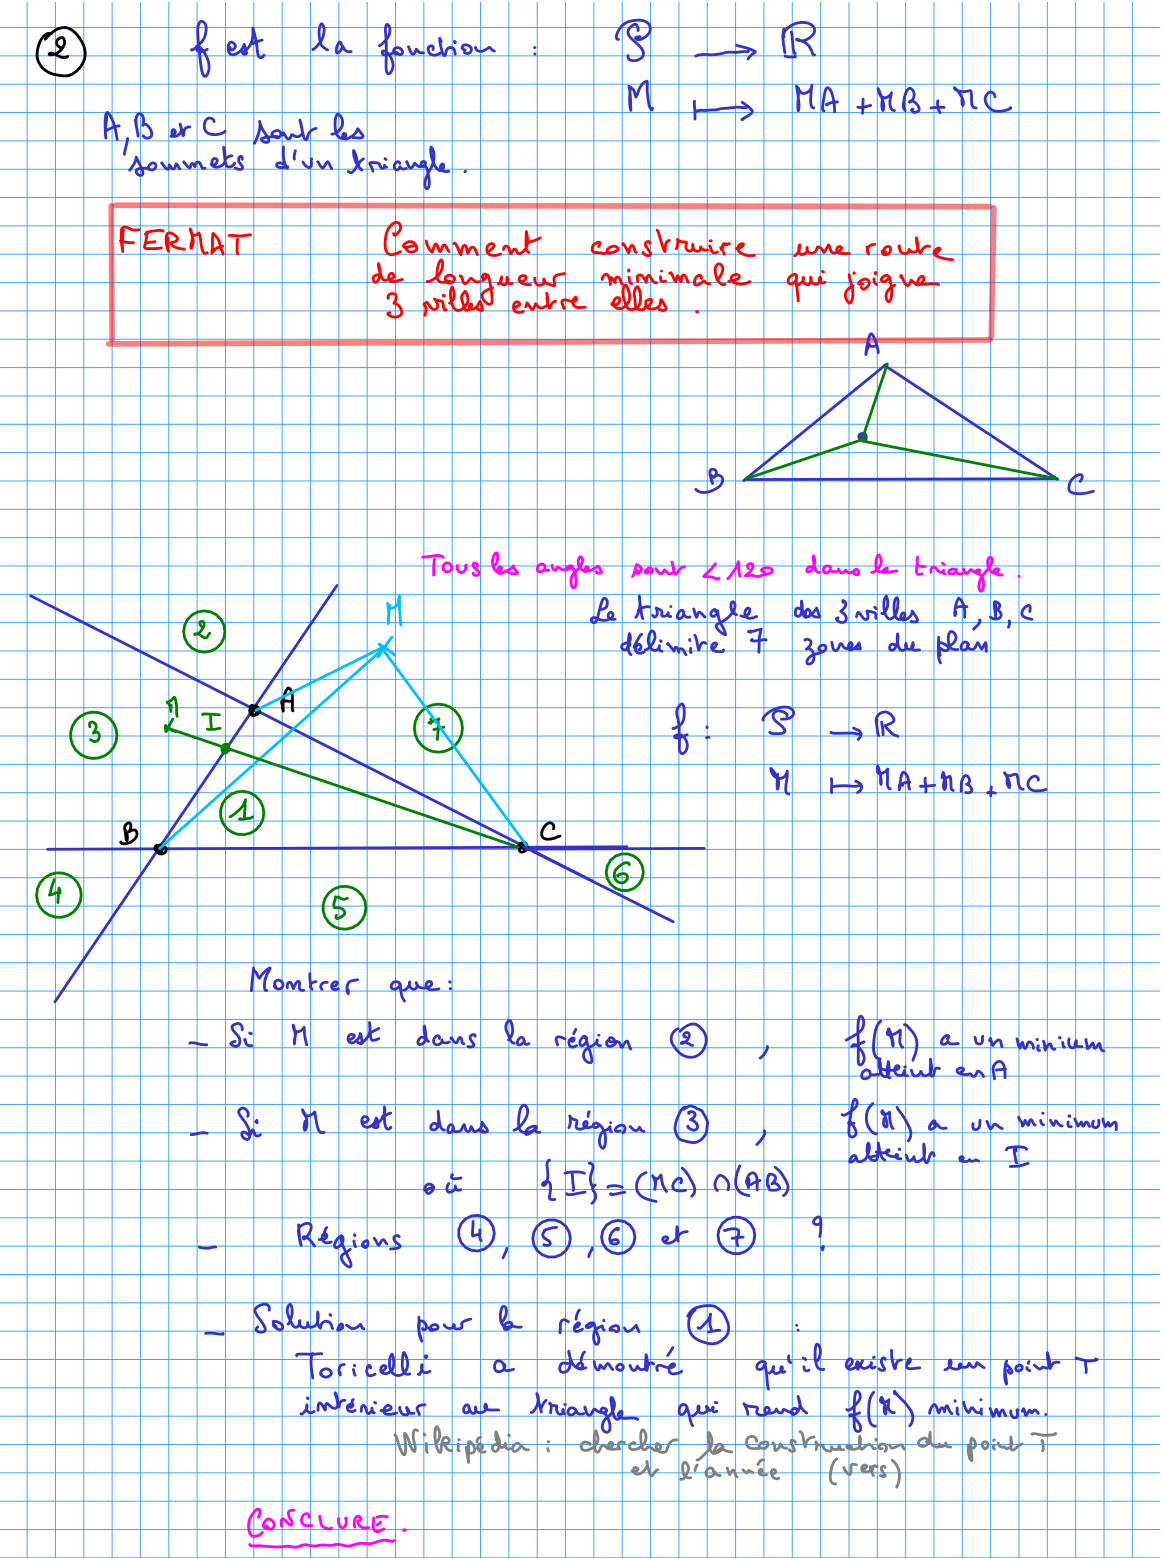 2 f est la fonction : P → R
M ↦ MA + MB + MC
A, B et C sont les
sommets d'un triangle.
FERMAT Comment construire une route
de longueur minimale qui joigne
3 villes entre elles.
A
B
C
Tous les angles sont < 120 dans le triangle.
Le triangle des 3 villes A, B, C
délimite 7 zones du plan
M
2
A
M I
3
7
f : P → R
M ↦ MA + MB + MC
1
B
C
4
5
6
Montrer que :
- Si M est dans la région 2 , f(M) a un minium
atteint en A
- Si M est dans la région 3 , f(M) a un minimum
atteint en I
où {I} = (MC) ∩ (AB)
- Régions 4, 5, 6 et 7 ?
- Solution pour la région 1 :
Toricelli a démontré qu'il existe un point T
intérieur au triangle qui rend f(M) minimum.
Wikipédia : chercher la construction du point T
et l'année (vers)
CONCLURE.